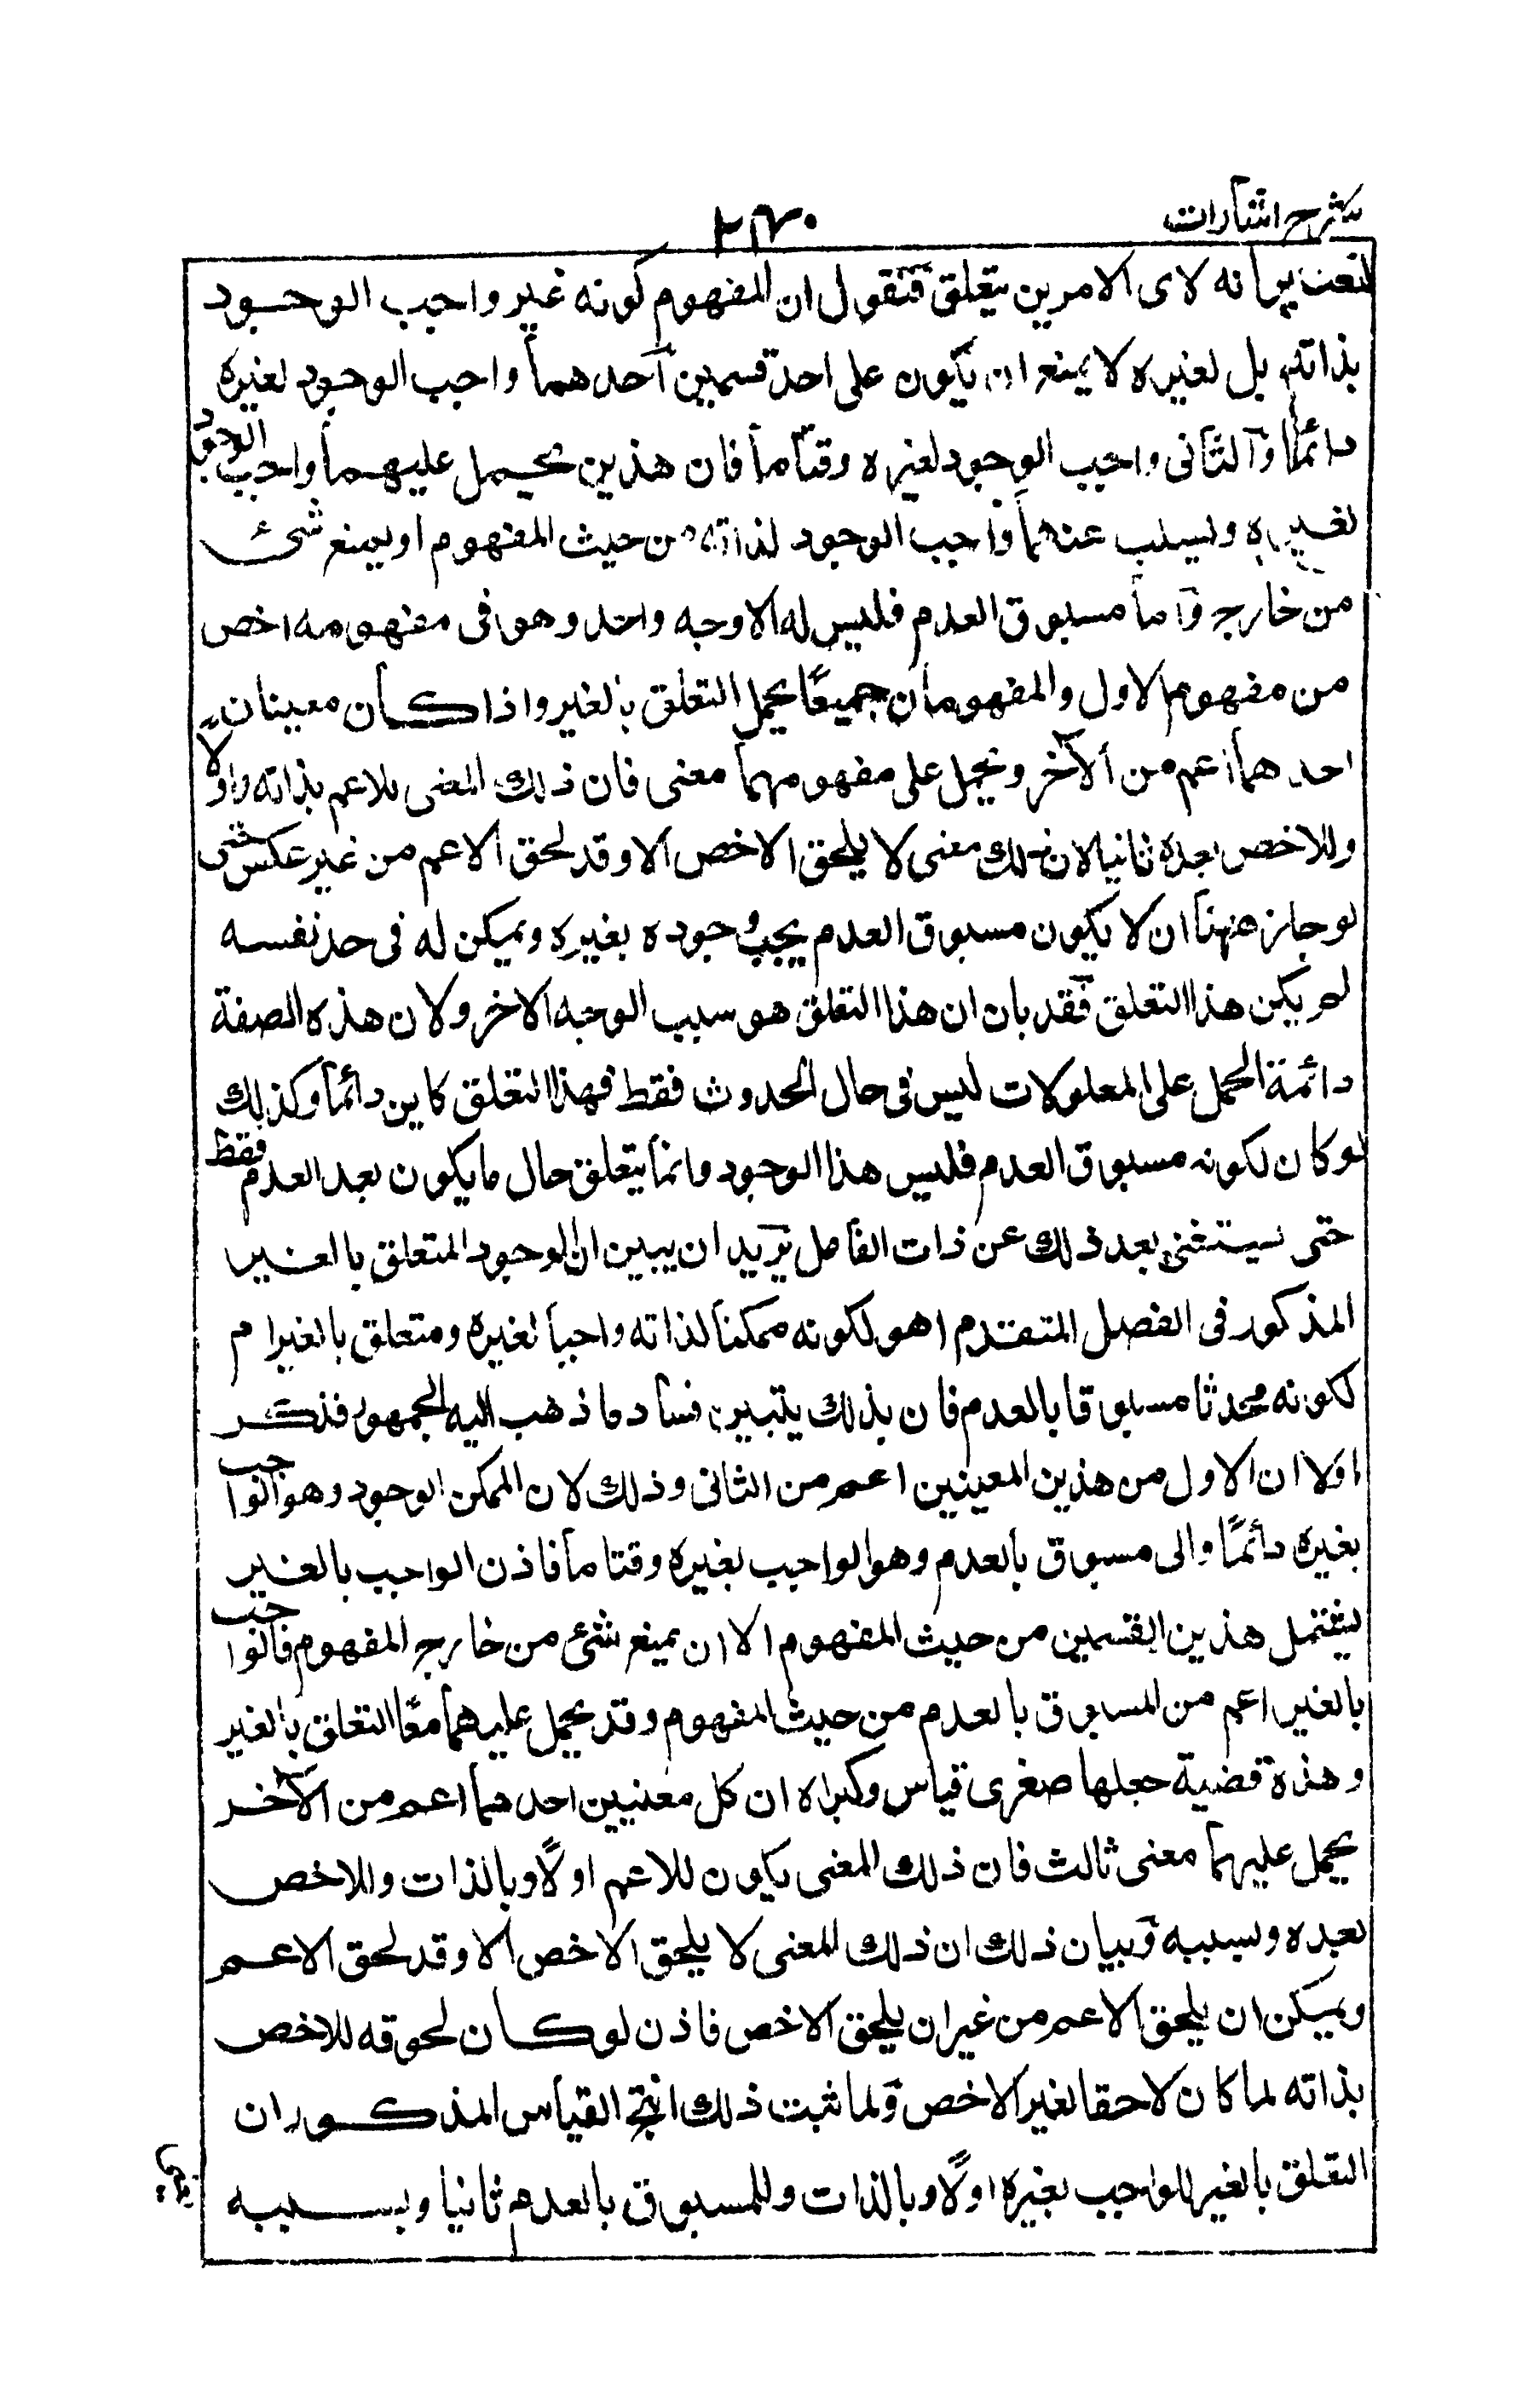 شرح اشارات
٢٣٠
لنعتبر انه لاى الامرين يتعلق فنقول ان المفهوم كونه غير واجب الوجود
بذاته بل لغيره لا يمنع ان يكون على احد قسمين احدهما واجب الوجود لغيره
دائما والثانى واجب الوجود لغيره وقتا ما فان هذين يحمل عليهما واجب الوجود
لغيره ويسلب عنهما واجب الوجود لذاته من حيث المفهوم او يمنع شئ
من خارج واما مسبوق العدم فليس له الا وجه واحد وهو فى مفهومه اخص
من مفهوم الاول والمفهومان جميعًا يحمل التعلق بالغير واذا كان معينان
احدهما اعم من الآخر ويحمل على مفهومهما معنى فان ذلك المعنى للاعم بذاته واولا
وللاخص بعده ثانيا لان ذلك معنى لا يلحق الاخص الا وقد لحق الاعم من غير عكس حتى
لو جاز ههنا ان لا يكون مسبوق العدم يجب وجوده بغيره ويمكن له فى حد نفسه
لم يكن هذا التعلق فقد بان ان هذا التعلق هو سبب الوجه الاخر ولان هذه الصفة
دائمة الحمل على المعلولات ليس فى حال الحدوث فقط فهذا التعلق كاين دائما وكذلك
لو كان لكونه مسبوق العدم فليس هذا الوجود وانما يتعلق حال ما يكون بعد العدم فقط
حتى يستغنى بعد ذلك عن ذات الفاعل يريد ان يبين ان الوجود المتعلق بالغير
المذكور فى الفصل المتقدم اهو لكونه ممكنا لذاته واجبا لغيره ومتعلق بالغير ام
لكونه محدثا مسبوقا بالعدم فان بذلك يتبين فساد ما ذهب اليه الجمهور فذكر
اولا ان الاول من هذين المعينين اعم من الثانى وذلك لان الممكن الوجود وهو الواجب
بغيره دائمًا والى مسبوق بالعدم وهو الواجب بغيره وقتا ما فاذن الواجب بالغير
يشتمل هذين القسمين من حيث المفهوم الا ان يمنع شئ من خارج المفهوم فالواجب
بالغير اعم من المسبوق بالعدم من حيث المفهوم وقد يحمل عليهما معًا التعلق بالغير
وهذه قضية جعلها صغرى قياس وكبراه ان كل معنيين احدهما اعم من الآخر
يحمل عليهما معنى ثالث فان ذلك المعنى يكون للاعم اولًا وبالذات وللاخص
بعده وبسببه وبيان ذلك ان ذلك المعنى لا يلحق الاخص الا وقد لحق الاعم
ويمكن ان يلحق الاعم من غير ان يلحق الاخص فاذن لو كان لحوقه للاخص
بذاته لما كان لاحقا لغير الاخص ولما ثبت ذلك انتج القياس المذكور ان
التعلق بالغير للواجب بغيره اولًا وبالذات وللمسبوق بالعدم ثانيا وبسببه